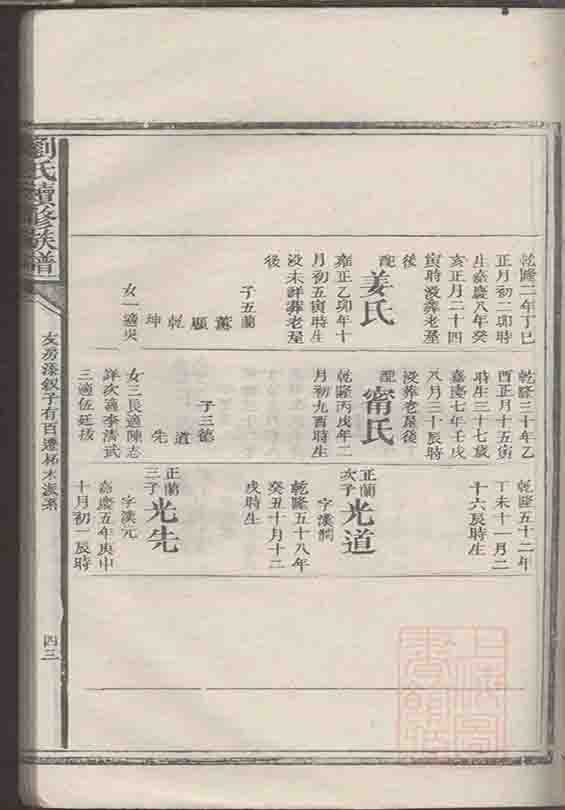 乾隆二年丁巳
正月初二卯時
生嘉慶八年癸
亥正月二十四
寅時歿葬老屋
後
配姜氏
雍正乙卯年十
月初五寅時生
歿未詳葬老屋
後
子五蘭
蕙
顯
乾
坤
女一適吳
乾隆三十年乙
酉正月十五寅
時生三十七歲
嘉慶七年壬戌
八月三十辰時
歿葬老屋後
配甯氏
乾隆丙戌年二
月初九酉時生
子三德
道
先
女三長適陳志
詳次適李清武
三適伍廷拔
乾隆五十二年
丁未十一月二
十六辰時生
正蘭次子光道
字漢潤
乾隆五十八年
癸丑十月十二
戌時生
正蘭三子光先
字漢元
嘉慶五年庚申
十月初一辰時
劉氏續修族譜
友房漆釵子有百遷杯木派系
四三